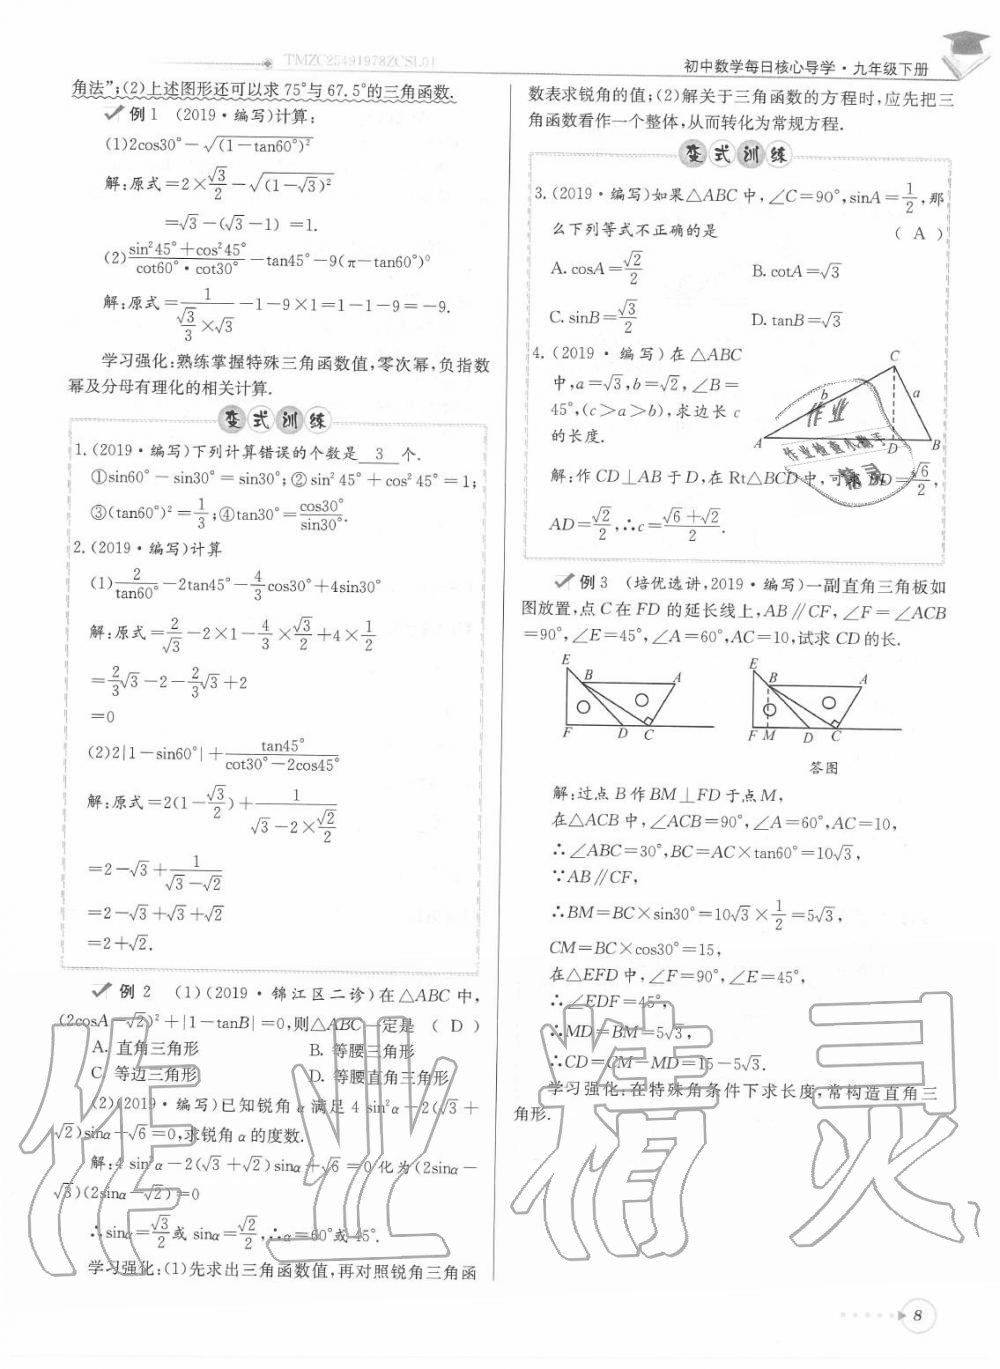 TMZC25491978ZCSL01
初中数学每日核心导学·九年级下册
角法”;(2)上述图形还可以求 75°与 67.5°的三角函数.
例 1 (2019·编写)计算:
(1)2cos30°-√(1-tan60°)²
解:原式=2×√3/2-√(1-√3)²
=√3-(√3-1)=1.
(2)(sin²45°+cos²45°)/(cot60°·cot30°)-tan45°-9(π-tan60°)⁰
解:原式=1/(√3/3×√3)-1-9×1=1-1-9=-9.
学习强化:熟练掌握特殊三角函数值,零次幂,负指数
幂及分母有理化的相关计算.
变式训练
1.(2019·编写)下列计算错误的个数是 3 个.
①sin60°-sin30°=sin30°;②sin²45°+cos²45°=1;
③(tan60°)²=1/3;④tan30°=cos30°/sin30°.
2.(2019·编写)计算
(1)2/tan60°-2tan45°-4/3cos30°+4sin30°
解:原式=2/√3-2×1-4/3×√3/2+4×1/2
=2/3√3-2-2/3√3+2
=0
(2)2|1-sin60°|+tan45°/(cot30°-2cos45°)
解:原式=2(1-√3/2)+1/(√3-2×√2/2)
=2-√3+1/(√3-√2)
=2-√3+√3+√2
=2+√2.
例 2 (1)(2019·锦江区二诊)在△ABC 中,
(2cosA-√2)²+|1-tanB|=0,则△ABC 一定是 ( D )
A. 直角三角形 B. 等腰三角形
C. 等边三角形 D. 等腰直角三角形
(2)(2019·编写)已知锐角 α 满足 4 sin²α-2(√3+
√2)sinα+√6=0,求锐角 α 的度数.
解:4 sin²α-2(√3+√2)sinα+√6=0 化为(2sinα-
√3)(2sinα-√2)=0
∴sinα=√3/2或 sinα=√2/2,∴α=60°或 45°.
学习强化:(1)先求出三角函数值,再对照锐角三角函
数表求锐角的值;(2)解关于三角函数的方程时,应先把三
角函数看作一个整体,从而转化为常规方程.
变式训练
3.(2019·编写)如果△ABC 中,∠C=90°,sinA=1/2,那
么下列等式不正确的是 ( A )
A. cosA=√2/2 B. cotA=√3
C. sinB=√3/2 D. tanB=√3
4.(2019·编写)在△ABC
中,a=√3,b=√2,∠B=
45°,(c>a>b),求边长 c
的长度.
C
b
a
A
D
B
作业
作业检查小助手
精灵
解:作 CD⊥AB 于 D,在 Rt△BCD 中,可求 BD=√6/2,
AD=√2/2,∴c=(√6+√2)/2.
例 3 (培优选讲,2019·编写)一副直角三角板如
图放置,点 C 在 FD 的延长线上,AB∥CF,∠F=∠ACB
=90°,∠E=45°,∠A=60°,AC=10,试求 CD 的长.
E B A F D C
E B A F M D C
答图
解:过点 B 作 BM⊥FD 于点 M,
在△ACB 中,∠ACB=90°,∠A=60°,AC=10,
∴∠ABC=30°,BC=AC×tan60°=10√3,
∵AB∥CF,
∴BM=BC×sin30°=10√3×1/2=5√3,
CM=BC×cos30°=15,
在△EFD 中,∠F=90°,∠E=45°,
∴∠EDF=45°,
∴MD=BM=5√3,
∴CD=CM-MD=15-5√3.
学习强化:在特殊角条件下求长度,常构造直角三
角形.
作业精灵
8